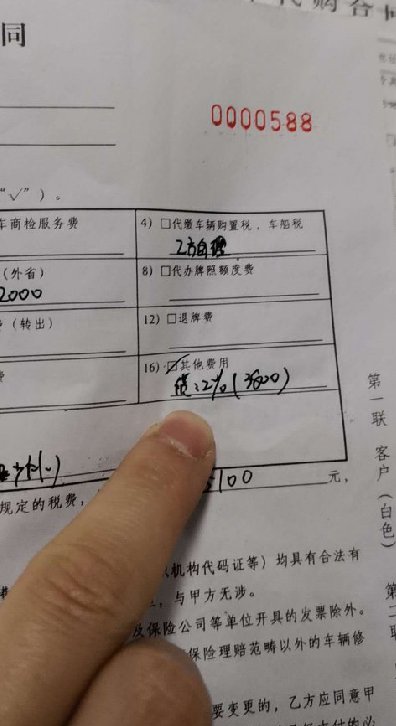 代购合同
同
0000588
“√”）。
车商检服务费
4）□代缴车辆购置税、车船税
乙方自理
（外省）
2000
8）□代办牌照额度费
（转出）
12）□退牌费
费
16）☑其他费用
:2%(3800)
第一联 客户（白色）
100 元，
规定的税费，
机构代码证等）均具有合法有
，与甲方无涉。
及保险公司等单位开具的发票除外。
保险理赔范畴以外的车辆修
要变更的，乙方应同意甲